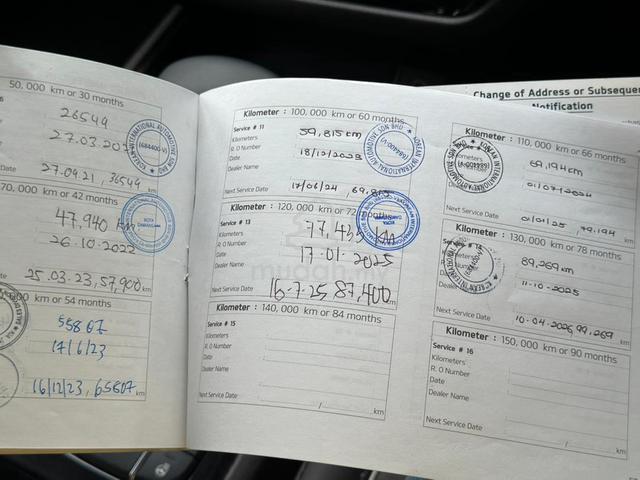 50,000 km or 30 months
26549
27.03.202
27.09.21, 36549
70,000 km or 42 months
47,940 km
26.10.2022
25.03.23, 57,900 km
km or 54 months
55807
17/6/23
16/12/23, 65807 km
Kilometer : 100,000 km or 60 months
Service # 11
Kilometers 59,815 km
R. O Number
Date 18/12/2023
Dealer Name
Next Service Date 17/06/24, 69,815
Kilometer : 120,000 km or 72 months
Service # 13
Kilometers 77,455 km
R. O Number
Date 17-01-2025
Dealer Name
Next Service Date 16-7-25 87,400 km
Kilometer : 140,000 km or 84 months
Service # 15
Kilometers
R. O Number
Date
Dealer Name
Next Service Date / km
Change of Address or Subsequen
Notification
Kilometer : 110,000 km or 66 months
69,194 km
01/07/2024
Next Service Date 01/01/25, 79,194 km
Kilometer : 130,000 km or 78 months
Service # 14
89,269 km
11-10-2025
Next Service Date 10-04-2026 99,269 km
Kilometer : 150,000 km or 90 months
Service # 16
Kilometers
R. O Number
Date
Dealer Name
Next Service Date / km